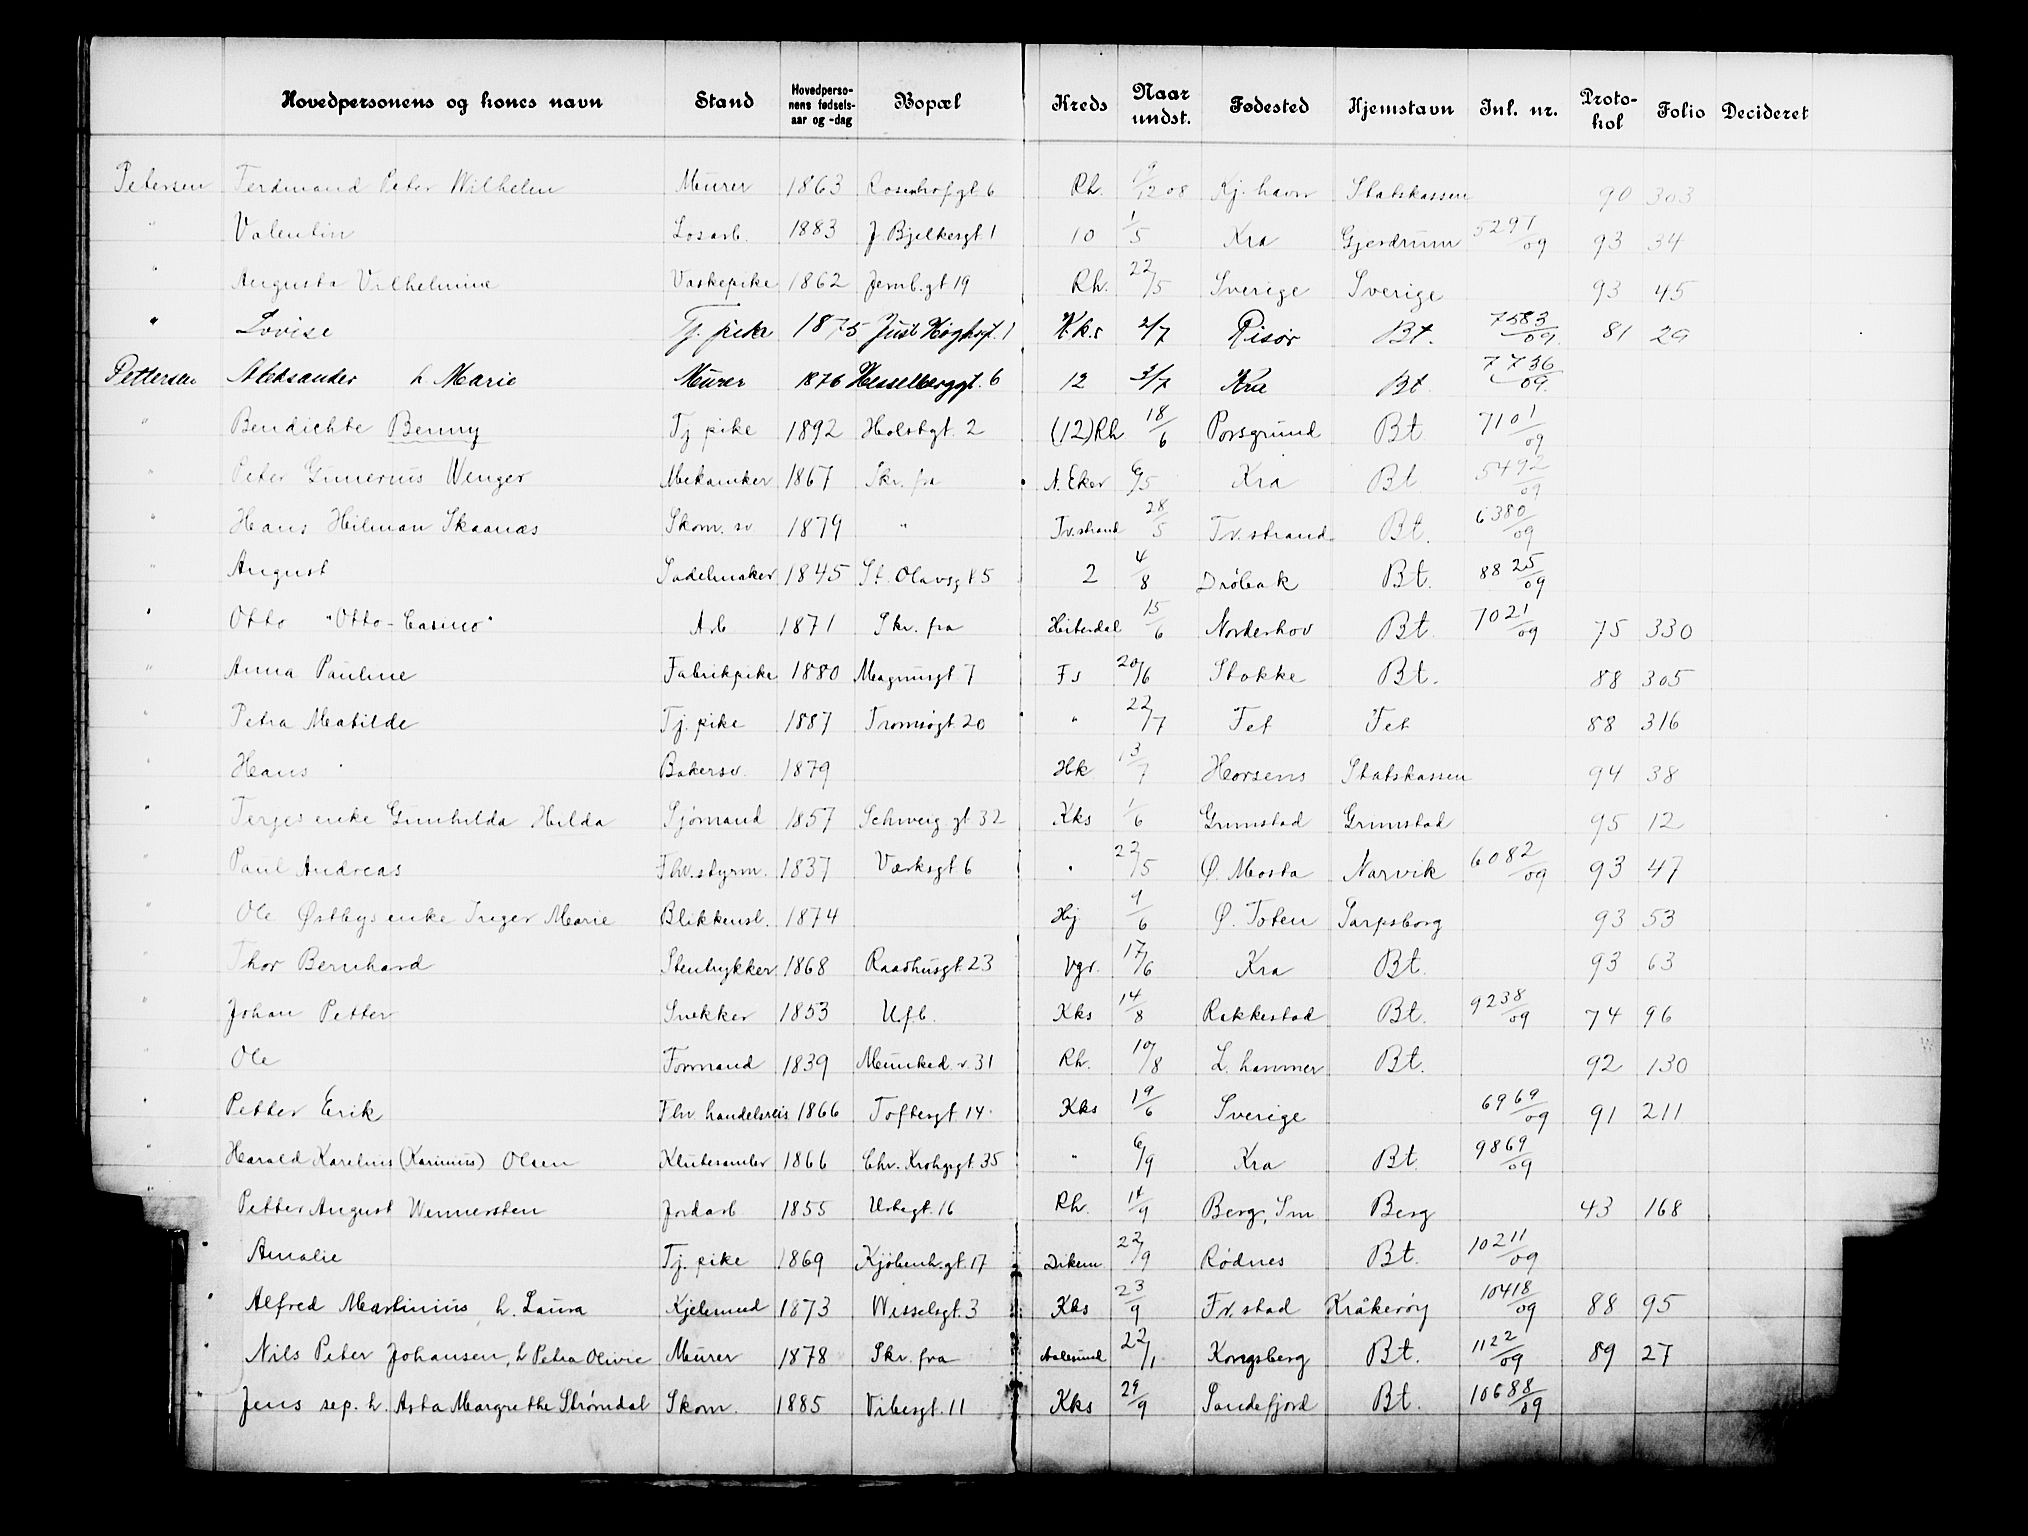 Hovedpersonens og kones navn Stand Hovedpersonens fødselsaar og -dag Bopæl Kreds Naar undst. Fødested Hjemstavn Inl. nr. Protokol Folio Decideret
Petersen Ferdinand Peter Wilhelm Murer 1863 Rosenhofgt 6 Rh. 9/12 08 Kj. havn Statskassen 90 303
" Valentin Losarb. 1883 J Bjelkesgt 1 10 1/5 Kra Gjerdrum 5291/09 93 34
" Augusta Vilhelmine Vaskepike 1862 Jernb.gt 19 Rh. 22/5 Sverige Sverige 93 45
" Lovise Tj. pike 1875 Just Høghsgt. 1 Kks 2/7 Risör Bt. 7583/09 81 29
Pettersen Aleksander h Marie Murer 1876 Hesselberggt. 6 12 3/7 Kra Bt 7736/09
" Bendichte Benny Tj pike 1892 Holstgt. 2 (12) Rh 18/6 Porsgrund Bt 7101/09
" Peter Gunerius Wenger Mekaniker 1867 Skr. fra N. Eker 6/5 Kra Bt 5492/09
" Hans Hilman Skaanæs Skom. sv 1879 " Tv.strand 28/5 Tv.strand Bt. 6380/09
" August Sadelmaker 1845 St. Olavsgt 5 2 4/8 Dröbak Bt. 8825/09
" Otto "Otto-Casino" Arb 1871 Skr. fra Hiterdal 15/6 Norderhov Bt. 7021/09 75 330
" Anna Pauline Fabrikpike 1880 Magnusgt 7 Fs 20/6 Stokke Bt. 88 305
" Petra Matilde Tj. pike 1887 Tromsøgt. 20 " 22/7 Fet Fet 88 316
" Hans Bakersv. 1879 Hk 13/7 Horsens Statskassen 94 38
" Terjes enke Gunhilda Hilda Sjömand 1857 Schweig.gt 32 Kks 1/6 Grimstad Grimstad 95 12
" Paul Andreas Fhv.styrm. 1837 Værksgt 6 " 22/5 Ø. Mosta Narvik 6082/09 93 47
" Ole Østbys enke Inger Marie Blikkensl. 1874 Hj. 9/6 Ø. Toten Sarpsborg 93 53
" Thor Bernhard Stentrykker 1868 Raadhusgt. 23 Vgr. 17/6 Kra Bt. 93 63
" Johan Petter Snekker 1853 Ufb. Kks 14/8 Rakkestad Bt. 9238/09 74 96
" Ole Formand 1839 Munked. v. 31 Rh. 10/8 L. hammer Bt. 92 130
" Petter Erik Fhv. handelsreis 1866 Toftesgt. 14 Kks 19/6 Sverige 6969/09 91 211
" Harald Karelius (Karinius) Olsen Klutesamler 1866 Chr. Krohgsgt. 35 " 6/9 Kra Bt. 9869/09
" Petter August Wennersten Jordarb. 1855 Urtegt. 16 Rh. 14/9 Berg, Sm Berg 43 168
" Amalie Tj. pike 1869 Kjöbenh.gt. 17 Dikem. 22/9 Rødnes Bt. 10211/09
" Alfred Martinius, h. Laura Kjelsmed 1873 Wesselsgt. 3 Kks 23/9 Fr. stad Kråkerøy 10418/09 88 95
" Nils Peter Johansen, h Petra Olivie Murer 1878 Skr. fra Aalesund 22/1 Kongsberg Bt. 1122/09 89 27
" Jens sep. h. Asta Margrethe Strømdal Skom. 1885 Vibesgt. 11 Kks 29/9 Sandefjord Bt. 10688/09